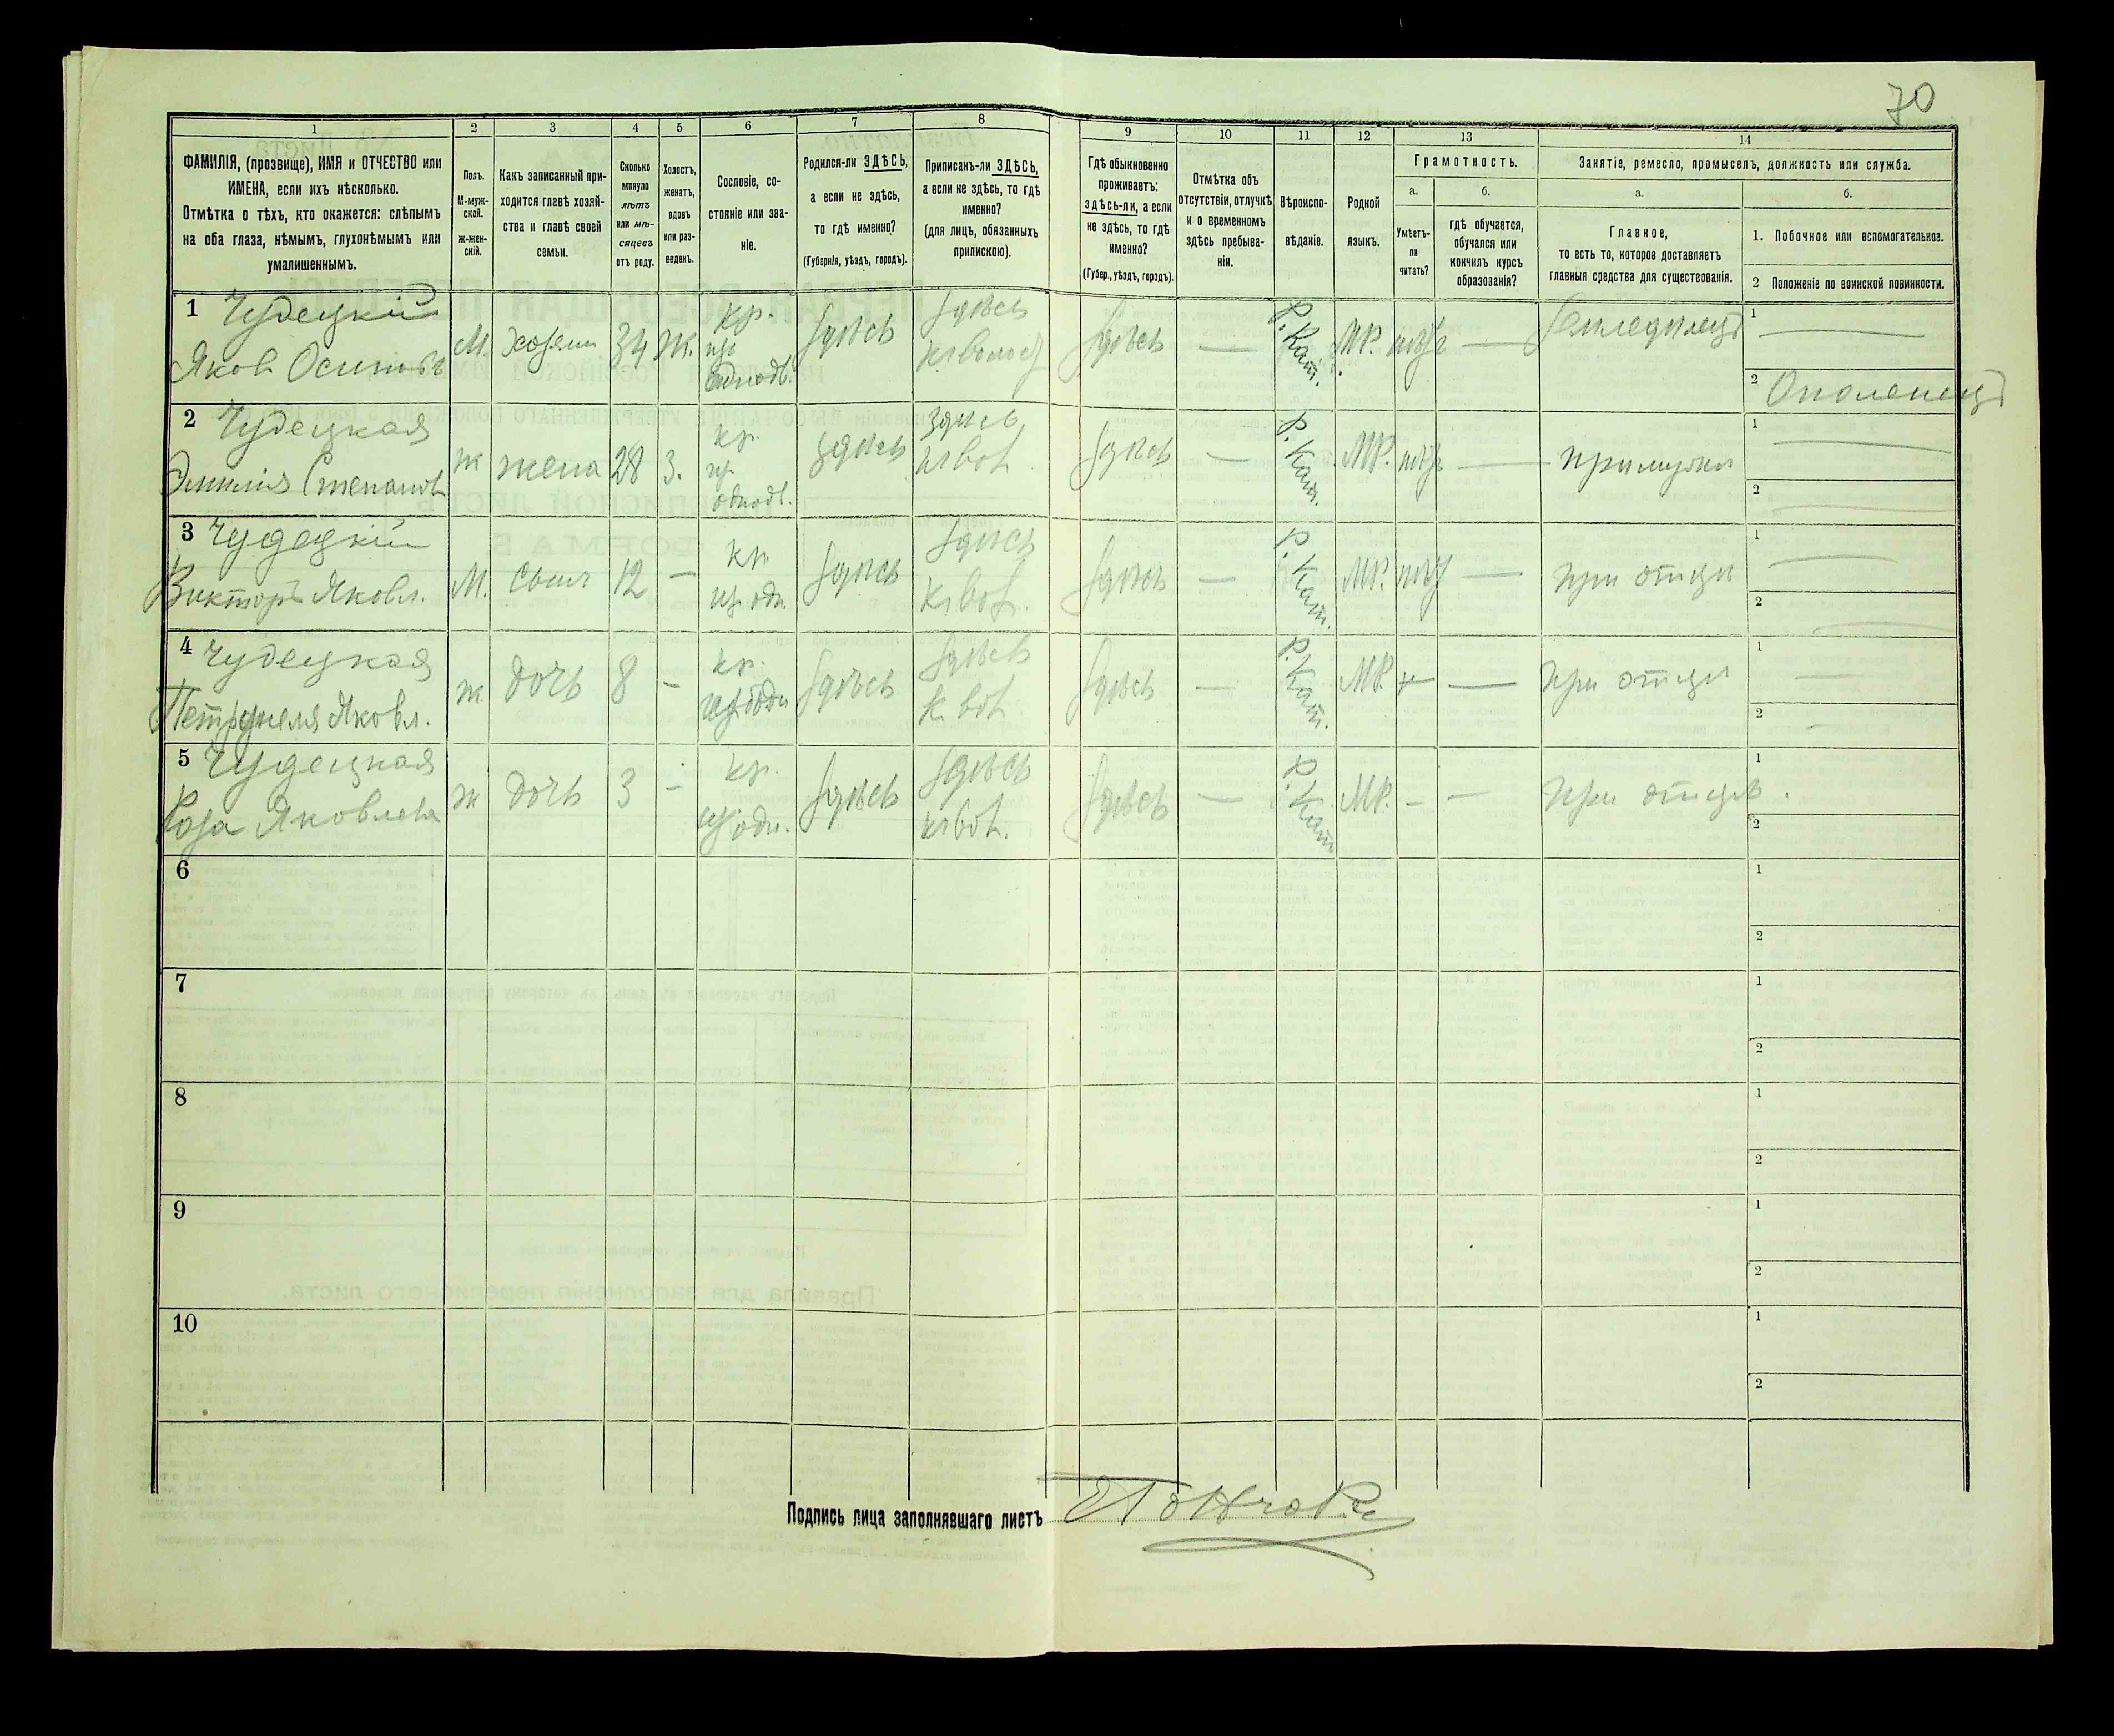 70
1
2
3
4
5
6
7
8
9
10
11
12
13
14
ФАМИЛІЯ, (прозвище), ИМЯ и ОТЧЕСТВО или
ИМЕНА, если ихъ нѣсколько.
Отмѣтка о тѣхъ, кто окажется: слѣпымъ
на оба глаза, нѣмымъ, глухонѣмымъ или
умалишеннымъ.
Полъ.
М-муж-
ской.
ж-жен-
скій.
Какъ записанный при-
ходится главѣ хозяй-
ства и главѣ своей
семьи.
Сколько
минуло
лѣтъ
или мѣ-
сяцевъ
отъ роду.
Холостъ,
женатъ,
вдовъ
или раз-
веденъ.
Сословіе, со-
стояніе или зва-
ніе.
Родился-ли ЗДѢСЬ,
а если не здѣсь,
то гдѣ именно?
(Губернія, уѣздъ, городъ).
Приписанъ-ли ЗДѢСЬ,
а если не здѣсь, то гдѣ
именно?
(для лицъ, обязанныхъ
припискою).
Гдѣ обыкновенно
проживаетъ:
здѣсь-ли, а если
не здѣсь, то гдѣ
именно?
(Губер., уѣздъ, городъ).
Отмѣтка объ
отсутствіи, отлучкѣ
и о временномъ
здѣсь пребыва-
ніи.
Вѣроиспо-
вѣданіе.
Родной
языкъ.
Грамотность.
а.
б.
Умѣетъ-
ли
читать?
гдѣ обучается,
обучался или
кончилъ курсъ
образованія?
Занятіе, ремесло, промыселъ, должность или служба.
а.
б.
Главное,
то есть то, которое доставляетъ
главныя средства для существованія.
1. Побочное или вспомогательное.
2 Положеніе по воинской повинности.
1 Чудецкій
Яковъ Осиповъ
М. хозяин 34 Ж. кр. из однодв. здѣсь здѣсь здѣсь — Р. Кат. МР. — Земледѣлецъ
1 —
2 Ополченецъ
2 Чудецкая
Эмилія Степанов
ж жена 28 З. кр. из однодв. здѣсь здѣсь здѣсь — Р. Кат. МР. — при мужѣ
1 —
2 —
3 Чудецкій
Викторъ Яковл.
М. сынъ 12 — кр. из одн. здѣсь здѣсь здѣсь — Р. Кат. МР. — при отцѣ
1 —
2 —
4 Чудецкая
Петронеля Яковл.
ж дочь 8 — кр. из одн. здѣсь здѣсь здѣсь — Р. Кат. МР. — при отцѣ
1 —
2 —
5 Чудецкая
Роза Яковлева
ж дочь 3 — кр. из одн. здѣсь здѣсь здѣсь — Р. Кат. МР. - — при отцѣ.
1
2
6
1
2
7
1
2
8
1
2
9
1
2
10
1
2
Подпись лица заполнявшаго листъ